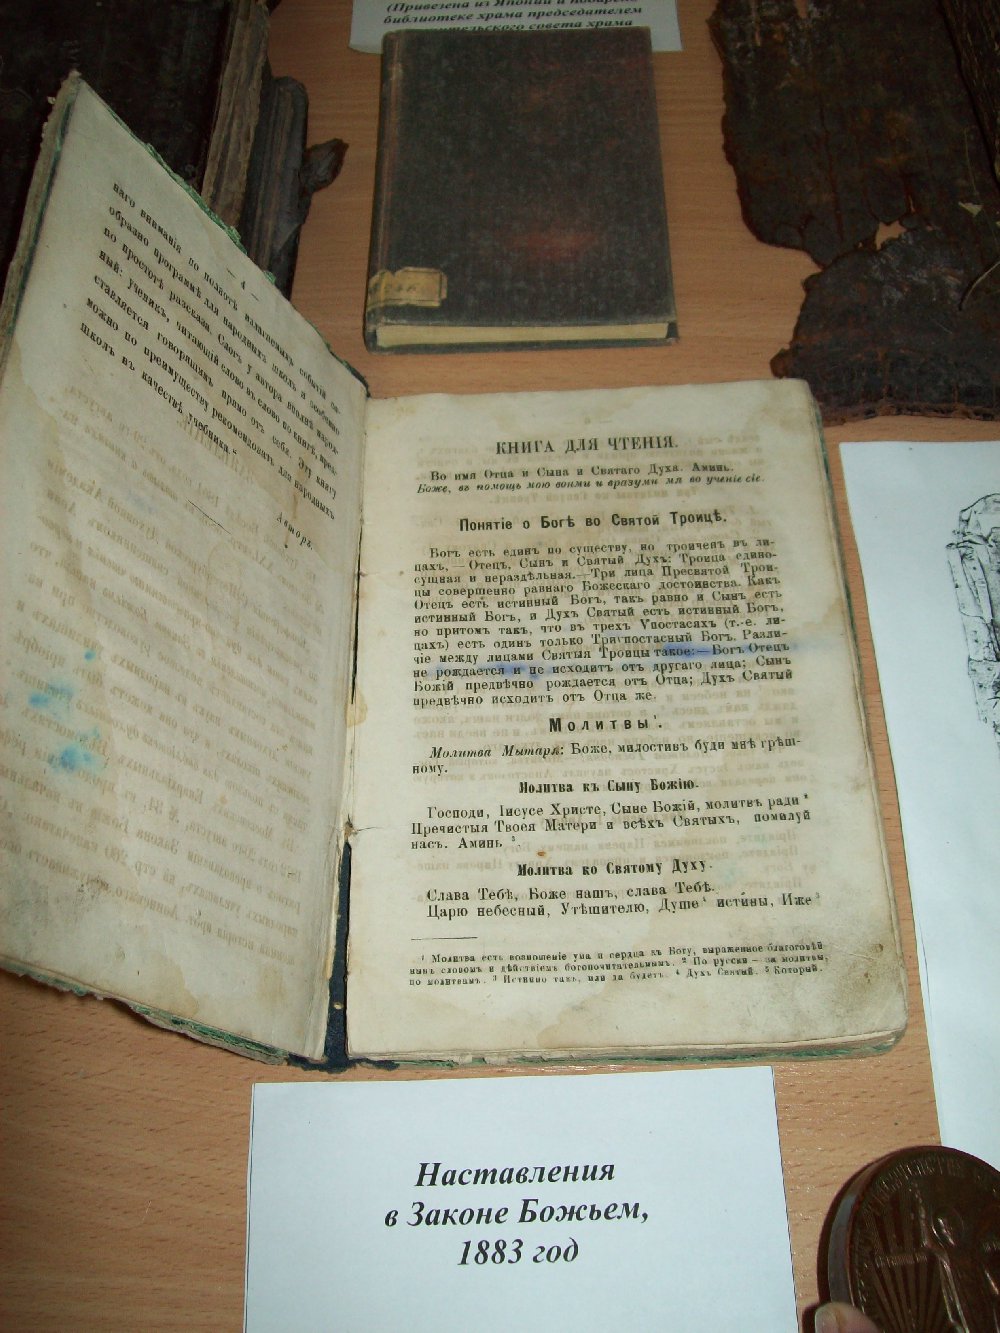 (Привезена из Японии и подарена
библиотеке храма председателем
попечительского совета храма
— 4 —
наго вниманія по полнотѣ излагаемыхъ событій со-
образно программѣ для народныхъ школъ и особенно
по простотѣ разсказа. Слогъ у автора вполнѣ народ-
ный: ученикъ, читающій слово въ слово по книгѣ, пред-
ставляется говорящимъ прямо отъ себя. Эту книгу
можно по преимуществу рекомендовать для народныхъ
школъ въ качествѣ учебника."
Авторъ.
КНИГА ДЛЯ ЧТЕНІЯ.
Во имя Отца и Сына и Святаго Духа. Аминь.
Боже, въ помощь мою вонми и вразуми мя во ученіе сіе.
Понятіе о Богѣ во Святой Троицѣ.
Богъ есть единъ по существу, но троиченъ въ ли-
цахъ,—Отецъ, Сынъ и Святый Духъ: Троица едино-
сущная и нераздѣльная.—Три лица Пресвятой Трои-
цы совершенно равнаго Божескаго достоинства. Какъ
Отецъ есть истинный Богъ, такъ равно и Сынъ есть
истинный Богъ, и Духъ Святый есть истинный Богъ,
но притомъ такъ, что въ трехъ Упостасяхъ (т.-е. ли-
цахъ) есть одинъ только Тріупостасный Богъ. Разли-
чіе между лицами Святыя Троицы такое:—Богъ Отецъ
не рождается и не исходитъ отъ другаго лица; Сынъ
Божій предвѣчно рождается отъ Отца; Духъ Святый
предвѣчно исходитъ отъ Отца же.
Молитвы¹.
Молитва Мытаря: Боже, милостивъ буди мнѣ грѣш-
ному.
Молитва къ Сыну Божію.
Господи, Іисусе Христе, Сыне Божій, молитвъ ради²
Пречистыя Твоея Матери и всѣхъ Святыхъ, помилуй
насъ. Аминь³
Молитва ко Святому Духу.
Слава Тебѣ, Боже нашъ, слава Тебѣ.
Царю небесный, Утѣшителю, Душе⁴ истины, Иже⁵
¹ Молитва есть возношеніе ума и сердца къ Богу, выраженное благоговѣй
нымъ словомъ и дѣйствіемъ богопочитательнымъ. ² По русски—за молитвы,
по молитвамъ. ³ Истинно такъ, или да будетъ. ⁴ Духъ Святый. ⁵ Который.
Наставления
в Законе Божьем,
1883 год